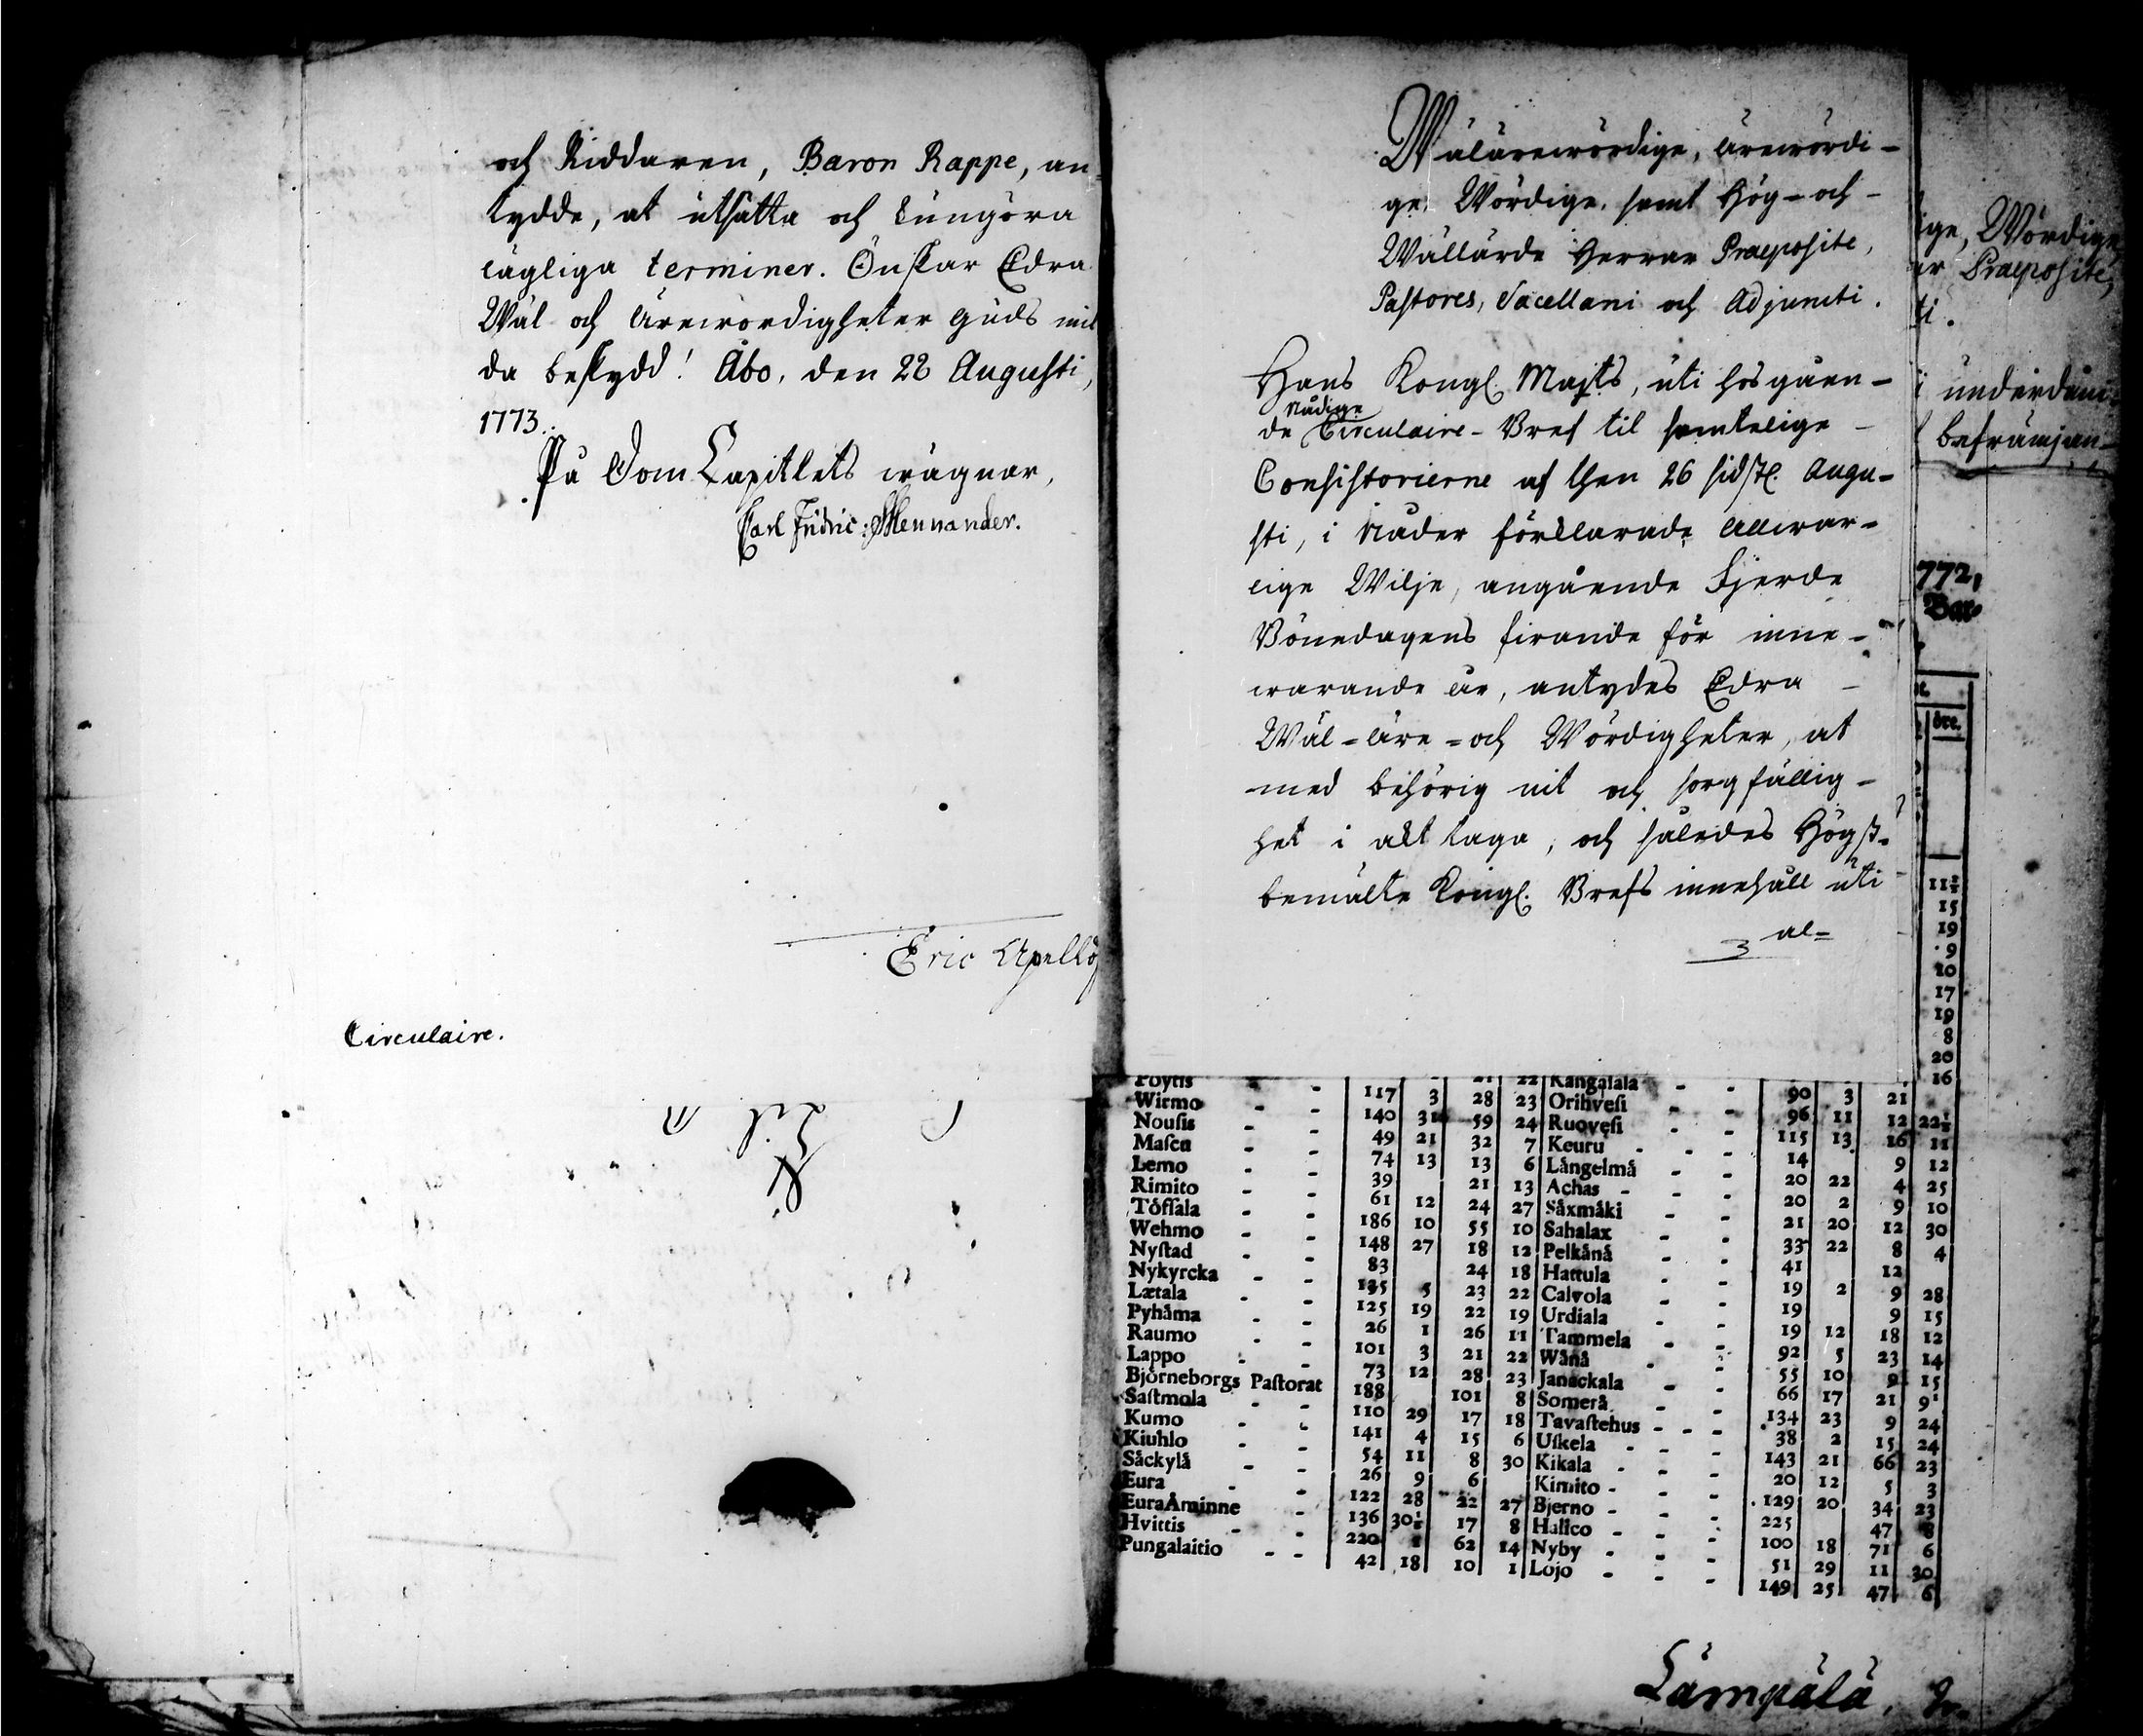 och Riddaren, Baron Rappe, an=
tydde, at utsätta och kungöra
lägliga terminer. Önskar Edra
Wäl och Ärewördigheter Guds mil
da beskydd! Åbo, den 28 Augusti,
1773.
På Dom Capitlets wägnar,
Carl Fridric: Mennander.
Eric Apellö
Circulaire.
Wälärewördige, Ärewördi-
ge, Wördige, samt Hög- och-
Wällärde Herrar Præposite,
Pastores, Sacellani och Adjuncti.
Hans Kongl. Majts, uti hosgåen-
de Nådige Circulaire-Bref til samtelige
Consistorierne af then 26 sidstl. Augu-
sti, i Nåder förklarade allwar-
lige Wilje, angående Fjerde
Bönedagens firande för inne-
warande år, antydes Edra
Wäl-äre-och Wördigheter, at
med behörig nit och sorgfällig-
het i akt taga, och således Högst-
bemälte Kongl. Brefs innehåll uti
al=
3
ige, Wördige,
ar Præposite,
ti.
i underdån=
befrämjan-
772,
Bar-
öre.
11½
15
19
9
10
17
19
8
20
16
Pöytis - - 21 22 Kangasala - - 90 3 21
Wirmo - - 117 3 28 23 Orihvesi - - 96 11 12 22½
Nousis - - 140 31 59 24 Ruovesi - - 115 13 16 11
Mascu - - 49 21 32 7 Keuru - - 14 9 12
Lemo - - 74 13 13 6 Långelmå - - 20 22 4 25
Rimito - - 39 21 13 Achas - - 20 2 9 10
Töfsala - - 61 12 24 27 Såxmåki - - 21 20 12 30
Wehmo - - 186 10 55 10 Sahalax - - 33 22 8 4
Nystad - - 148 27 18 12 Pelkånå - - 41 12
Nykyrcka - - 83 24 18 Hattula - - 19 2 9 28
Lætala - - 135 5 23 22 Calvola - - 19 9 15
Pyhåma - - 125 19 22 19 Urdiala - - 19 12 18 12
Raumo - - 26 1 26 11 Tammela - - 92 5 23 14
Lappo - - 101 3 21 22 Wånå - - 55 10 9 15
Björneborgs Pastorat 73 12 28 23 Janackala - - 66 17 21 9
Sastmola - - 188 101 8 Somerå - - 134 23 9 24
Kumo - - 110 29 17 18 Tavastehus - - - 38 2 15 24
Kiuhlo - - 141 4 15 6 Uskela - - 143 21 66 23
Såckylå - - 54 11 8 30 Kikala - - 20 12 5 3
Eura - - 26 9 6 Kimito - - 129 20 34 23
EuraÅminne - 122 28 22 27 Bjerno - - 225 47 8
Hvittis - - 136 30½ 17 8 Halico - - 100 18 71 6
Pungalaitio - - 220 62 14 Nyby - - 51 29 11 30
42 18 10 1 Lojo - - 149 25 47 6
Lämpälä,